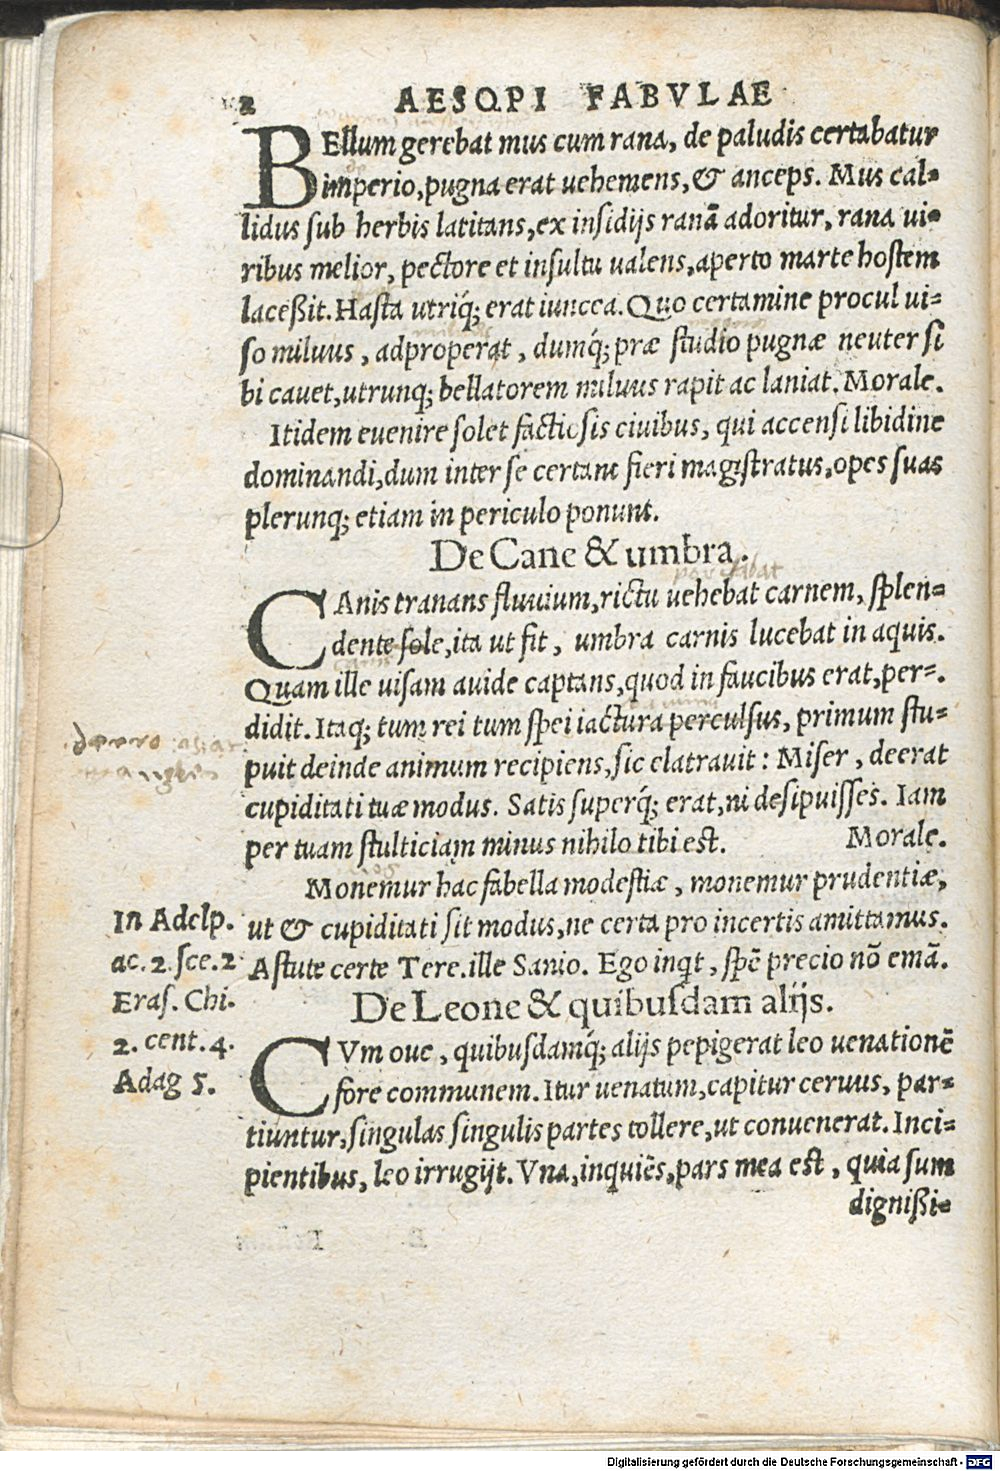 2 AESOPI FABVLAE
BEllum gerebat mus cum rana, de paludis certabatur
imperio, pugna erat uehemens, & anceps. Mus cal-
lidus sub herbis latitans, ex insidijs ranã adoritur, rana ui-
ribus melior, pectore et insultu ualens, aperto marte hostem
laceßit. Hasta utriq́; erat iuncea. Quo certamine procul ui-
so miluus, adproperat, dumq́; præ studio pugnæ neuter si
bi cauet, utrunq; bellatorem miluus rapit ac laniat. Morale.
Itidem euenire solet factiosis ciuibus, qui accensi libidine
dominandi, dum inter se certant fieri magistratus, opes suas
plerunq; etiam in periculo ponunt.
De Cane & umbra.
CAnis tranans fluuium, rictu uehebat carnem, splen-
dente sole, ita ut fit, umbra carnis lucebat in aquis.
Quam ille uisam auide captans, quod in faucibus erat, per-
didit. Itaq; tum rei tum spei iactura perculsus, primum stu-
puit deinde animum recipiens, sic elatrauit: Miser, deerat
cupiditati tuæ modus. Satis superq́; erat, ni desipuisses. Iam
per tuam stulticiam minus nihilo tibi est. Morale.
Monemur hac fabella modestiæ, monemur prudentiæ,
ut & cupiditati sit modus, ne certa pro incertis amittamus.
Astute certe Tere. ille Sanio. Ego inqt, spẽ precio nõ emã.
In Adelp.
ac. 2. sce. 2
Eras. Chi.
2. cent. 4.
Adag 5.
De Leone & quibusdam alijs.
CVm oue, quibusdamq́; alijs pepigerat leo uenationẽ
fore communem. Itur uenatum, capitur ceruus, par-
tiuntur, singulas singulis partes tollere, ut conuenerat. Inci-
pientibus, leo irrugijt. Vna, inquiẽs, pars mea est, quia sum
dignißi-
Digitalisierung gefördert durch die Deutsche Forschungsgemeinschaft - DFG